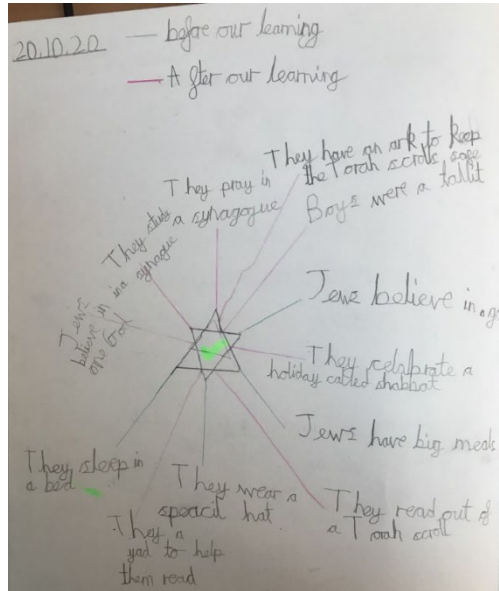 20.10.20
before our learning
After our learning
They have an ark to keep
the Torah scrolls safe
They pray in
a synagogue
Boys were a tallit
They study
in a synagogue
Jews
believe in
one God
Jews believe in a g
They celabrate a
holiday called shabbat
Jews have big meals
They sleep in
a bed
They wear a
speacil hat
They read out of
a Torah scroll
They a
yad to help
them read